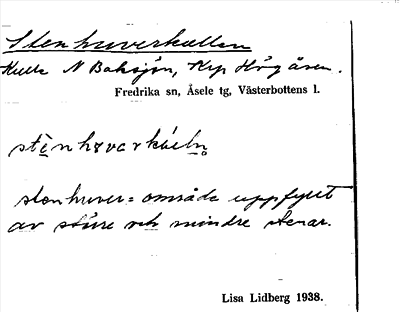 Stenhuverkällen
Källa N Baksjön, Krp Högåsen.
Fredrika sn, Åsele tg, Västerbottens l.
stenhuver = område uppfyllt
av större och mindre stenar.
Lisa Lidberg 1938.